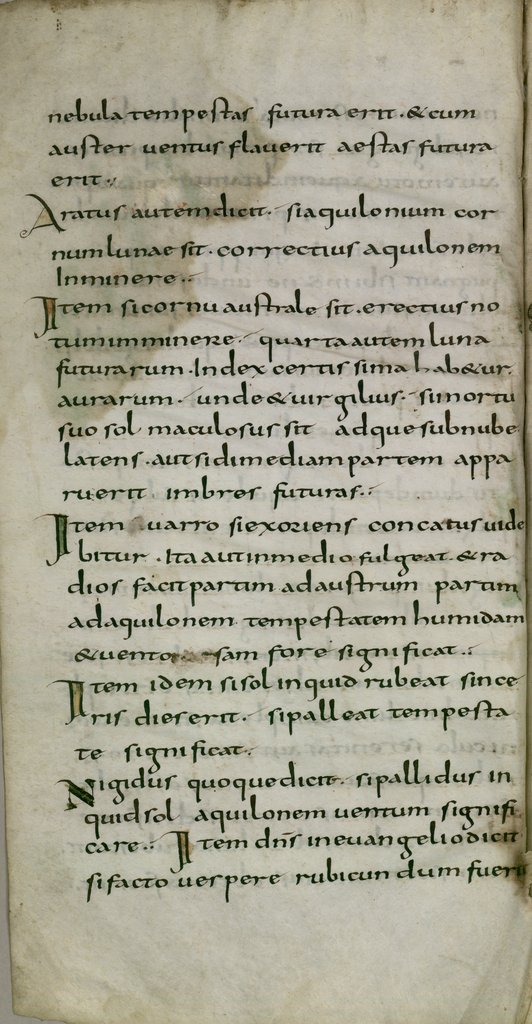 nebula tempestas futura erit · & cum
auster ventus flaverit aestas futura
erit ·,
Aratus autem dicit · si aquilonium cor
num lunae sit · correctius aquilonem
Inminere ·,
Item si cornu australe sit · erectius no
tum imminere · quarta autem luna
futurarum · Index certissima hab&ur
aurarum · unde & virgilius · sim ortu
suo sol maculosus sit adque subnube
latens · aut si dimediam partem appa
ruerit imbres futuras ·,
Item varro si exoriens concatus vide
bitur · Ita aut in medio fulgeat & ra
dios facit partim ad austrum partim
ad aquilonem tempestatem humidam
& vento sam fore significat ·,
Item idem si sol inquid rubeat since
ris dies erit · si palleat tempesta
te significat ·,
Nigidus quoque dicit · si pallidus in
quid sol aquilonem ventum signifi
care ·, Item dns in evangelio dicit
si facto vespere rubicundum fuerit